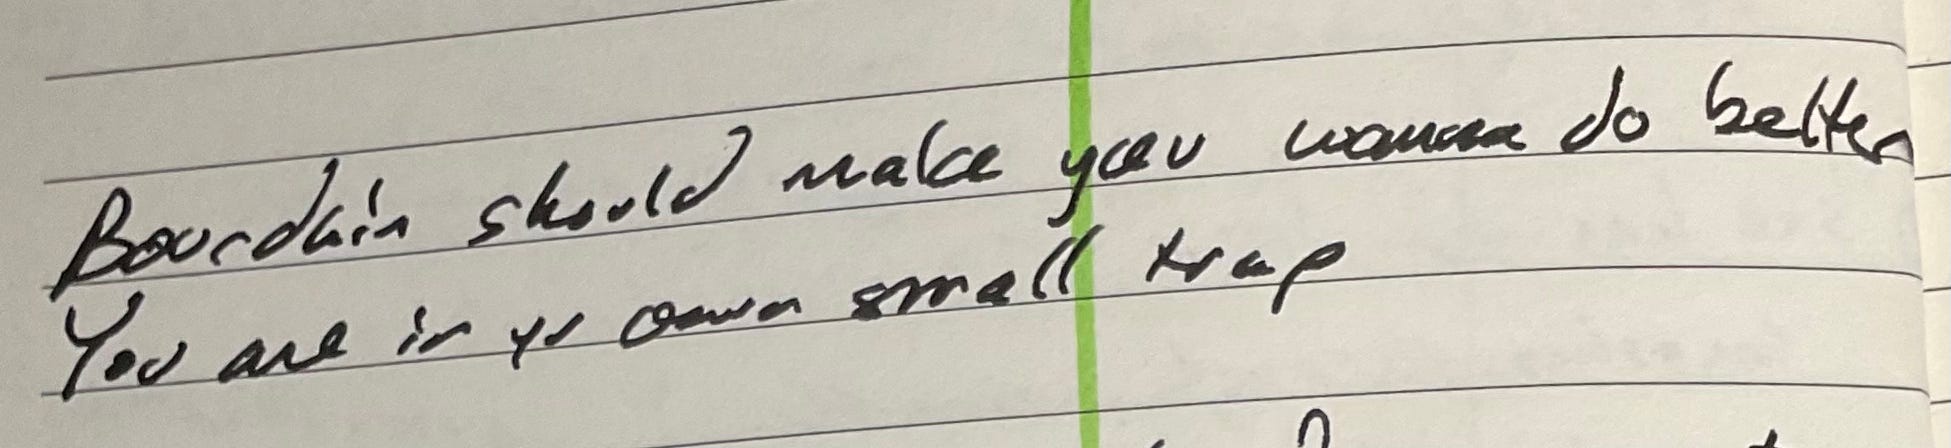 Bourdain should make you wanna do better
You are in yr own small trap